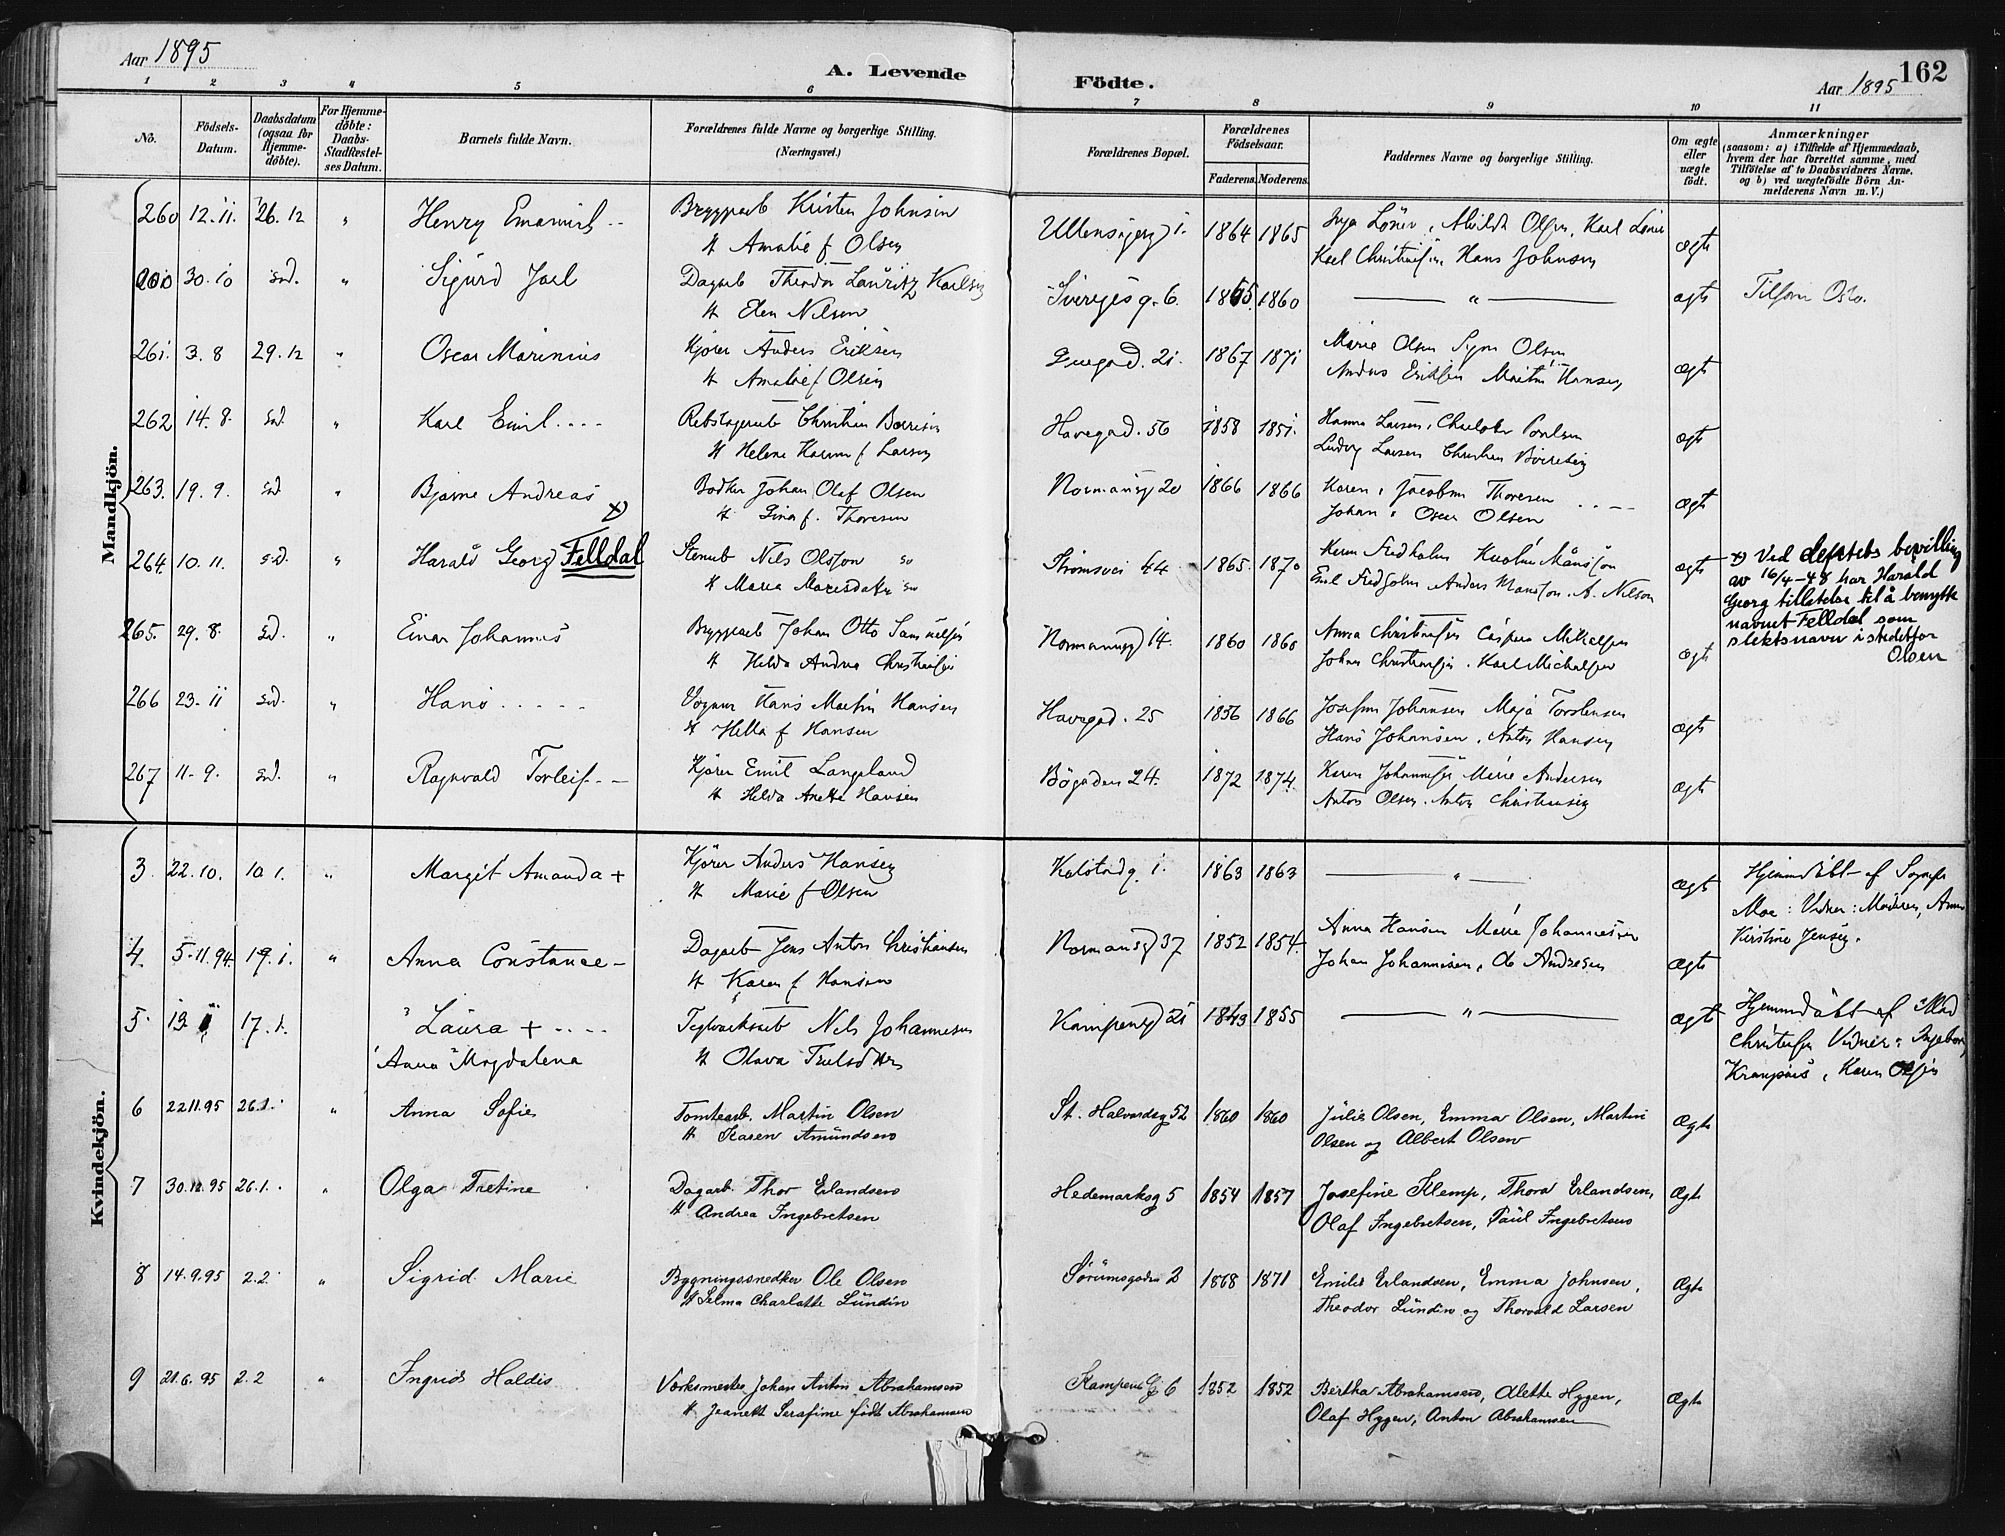 Aar 1895
A. Levende Födte.
162
Aar 1895
1 2 3 4 5 6 7 8 9 10 11
No.
Födsels-Datum.
Daabsdatum (ogsaa for Hjemme-döbte).
For Hjemme-döbte: Daabs-Stadfestel-ses Datum.
Barnets fulde Navn.
Forældrenes fulde Navne og borgerlige Stilling. (Næringsvei.)
Forældrenes Bopæl.
Forældrenes Födselsaar.
Faderens. Moderens.
Faddernes Navne og borgerlige Stilling.
Om ægte eller uægte födt.
Anmærkninger
(saasom: a) i Tilfælde af Hjemmedaab, hvem der har forrettet samme, med Tilföielse af to Daabsvidners Navne, og b) ved uægtefödte Börn An-melderens Navn m. V.)
Mandkjön.
260 12.11. 26.12 " Henry Emanuel Bryggearb Kristen Johnsen 1864 1865 ægte
H Amalie f Olsen Karl Christiansen Hans Johnsen
30.10 sd. " Sigurd Joel Dagarb Theodor Lauritz Karlsen Sverigesg. 6. 1865 1860 " ægte
H Elen Nilsen
261. 3.8 29.12 " Oscar Marinius Kjörer Anders Eriksen 21. 1867 1871 Marie Olsen Signe Olsen ægte
H Amalie f Olsen Anders Eriksen Martin Hansen
262 14.8. sd. " Karl Emil Christian Borresen Havegad. 56 1858 1851. Hanna Larsen, ægte
H Helene f Larsen Ludvig Larsen Christian
263. 19.9. sd " Bjarne Andreas x) Bödker Johan Olaf Olsen Normansg 20 1866 1866 Karen, Jacobine Thoresen ægte
H Lina f. Thoresen Johan, Oscar Olsen
264. 10.11. sd. " Harald Georg Felldal Stenarb Nils Olsson Strömsvei 44. 1865. 1870 ægte
H Maria Emil Fredholm Anders Månsson. A. Nilson
x) Ved dep'tets bevilling
av 16/4-48 har Harald
Georg tillatelse til å benytte
navnet Felldal som
slektsnavn istedetfor
Olsen
265. 29.8. sd. " Einar Johannes Bryggearb Johan Otto Samuelsen Normansg 14. 1860 1860 Anna Christiansen Caspara Mikaelsen ægte
H Hilda Andrea Christiansen Johan Christiansen. Karl Michalsen
266 23.11 sd. " Hans Vognm Hans Martin Hansen Havegad. 25 1856 1866 Josefine Johansen Maja Torstensen ægte
H Hella f Hansen Hans Johansen, Anton Hansen
267 11.9. sd. " Ragnvald Torleif Kjörer Emil Langeland Bögaden 24. 1872 1874. Karen Johannesen Marie Andersen ægte
H Hilda Anette Hansen Anton Olsen. Anton Christiansen
Kvindekjön.
3 22.10. 10.1. " Margit Amanda + Kjörer Anders Hansen Kalstadg 1. 1863 1863 " ægte
H Marie f Olsen
Hjemmedöbt af
Moe: Vidner: Moderen, Anna
Kirstine Jensen.
4. 5-11.94. 19.1. " Anna Constance Dagarb Jens Anton Christiansen Normansg 37 1852 1854. Anna Hansen Marie Johannesen ægte
H Karen f Hansen Johan Johannesen, Andresen
5. 13 17.1. Laura + Teglverksarb Nils Johannesen Kampensg 21 1843 1855 " ægte
Anna Magdalena H Olava Trulsdtter
Hjemmedöbt af
Christensen Vidner: Ingeborg
Karen Olsen
6 22 11.95 26.1. " Anna Sofie Tomtearb. Martin Olsen St. Halvardsg 52 1860 1860 Julie Olsen, Emma Olsen, Martin ægte
H Karen Amundsen Olsen og Albert Olsen
7 30.10.95 26.1. " Olga Tretine Dagarb. Thor Erlandsen Hedemarksg 5 1854 1857 Josefine Klemp, Thora Erlandsen, Ægte
H Andrea Ingebretsen Olaf Ingebretsen, Paul Ingebretsen
8 14.9.95 2.2 " Sigrid Marie Bygningssnedker Ole Olsen Sörumsgaden 2 1868 1871 Emilie Erlandsen, Emma Johnsen, Ægte
H Selma Charlotte Lundin Theodor Lundin og Thorvald Larsen
9 21.6.95 2.2 " Ingrid Haldis Værksmester Johan Anton Abrahamsen Kampensg 6 1852 1852 Bertha Abrahamsen, Alette Hygen, Ægte
H Jeanette Serafine født Abrahamsen Olaf Hygen, Anton Abrahamsen